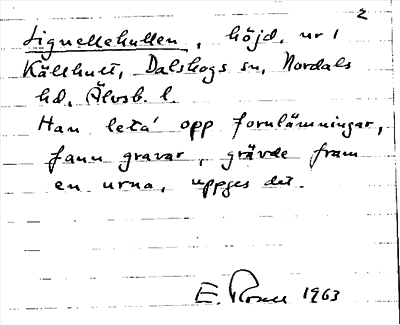 2
Lignellekullen, höjd. nr 1
Källhult, Dalskogs sn, Nordals
hd, Älvsb. l.
Han leta' opp fornlämningar,
fann gravar, grävde fram
en urna, uppges det.
E. 1963